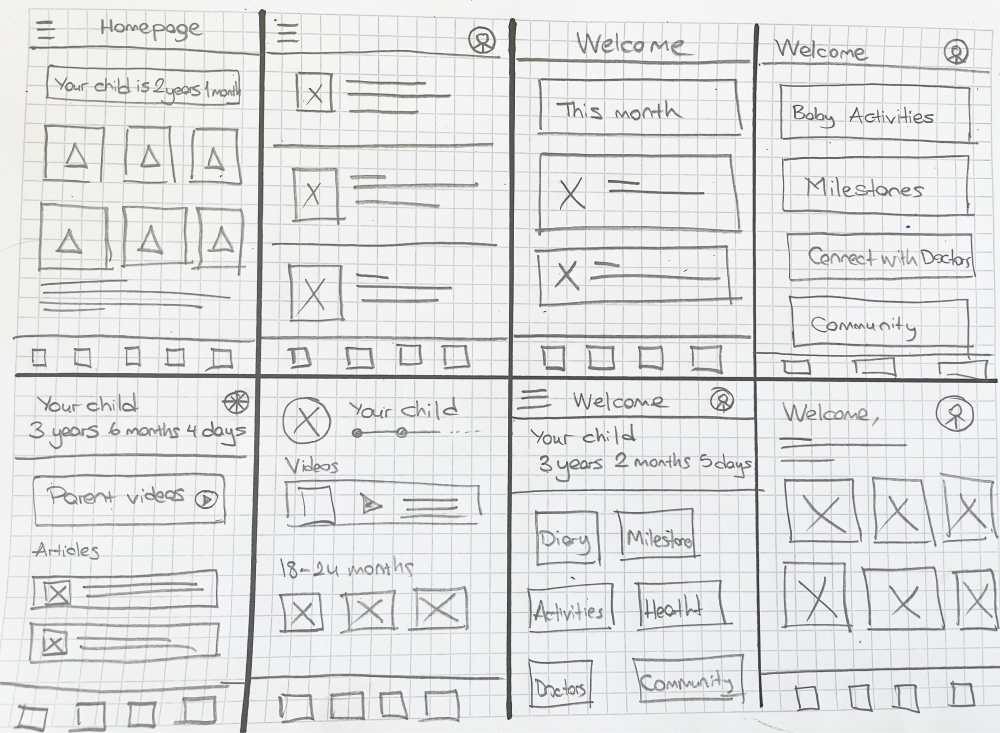 Homepage
Your child is 2 years 1 month
Welcome
This month
Welcome
Baby Activities
Milestones
Connect with Doctors
Community
Your child
3 years 6 months 4 days
Parent videos
Articles
Your child
Videos
18-24 months
Welcome
Your child
3 years 2 months 5 days
Diary
Milestone
Activities
Healht
Doctors
Community
Welcome,